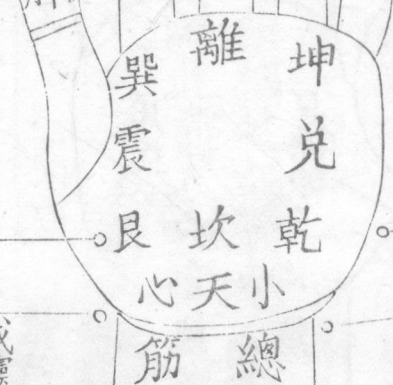 坤離巽
兑震
乾坎艮
小天心
總筋
靈